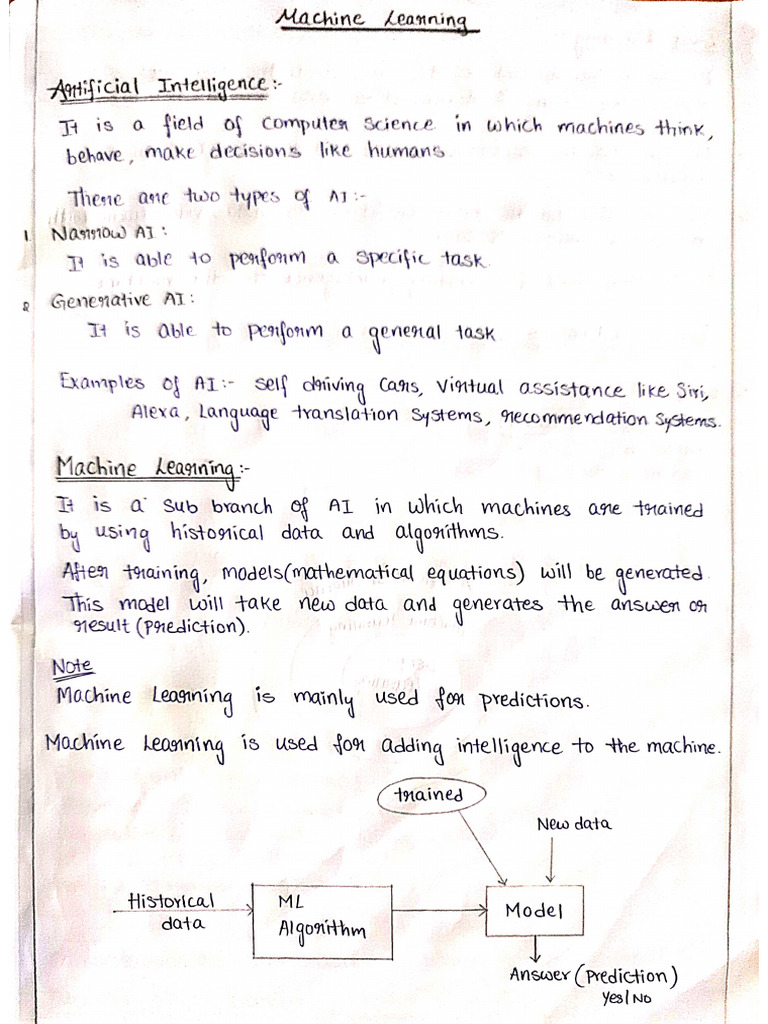 Machine Learning
Artificial Intelligence:-
It is a field of computer science in which machines think,
behave, make decisions like humans
There are two types of AI:-
1. Narrow AI:
It is able to perform a specific task.
2 Generative AI:
It is able to perform a general task
Examples of AI:- self driving Cars, Virtual assistance like Siri,
Alexa, Language translation systems, recommendation systems.
Machine Learning:-
It is a sub branch of AI in which machines are trained
by using historical data and algorithms.
After training, models(mathematical equations) will be generated.
This model will take new data and generates the answer or
result (prediction).
Note
Machine Learning is mainly used for predictions.
Machine Learning is used for adding intelligence to the machine.
trained
New data
Historical
data
ML
Algorithm
Model
Answer (Prediction)
Yes/No